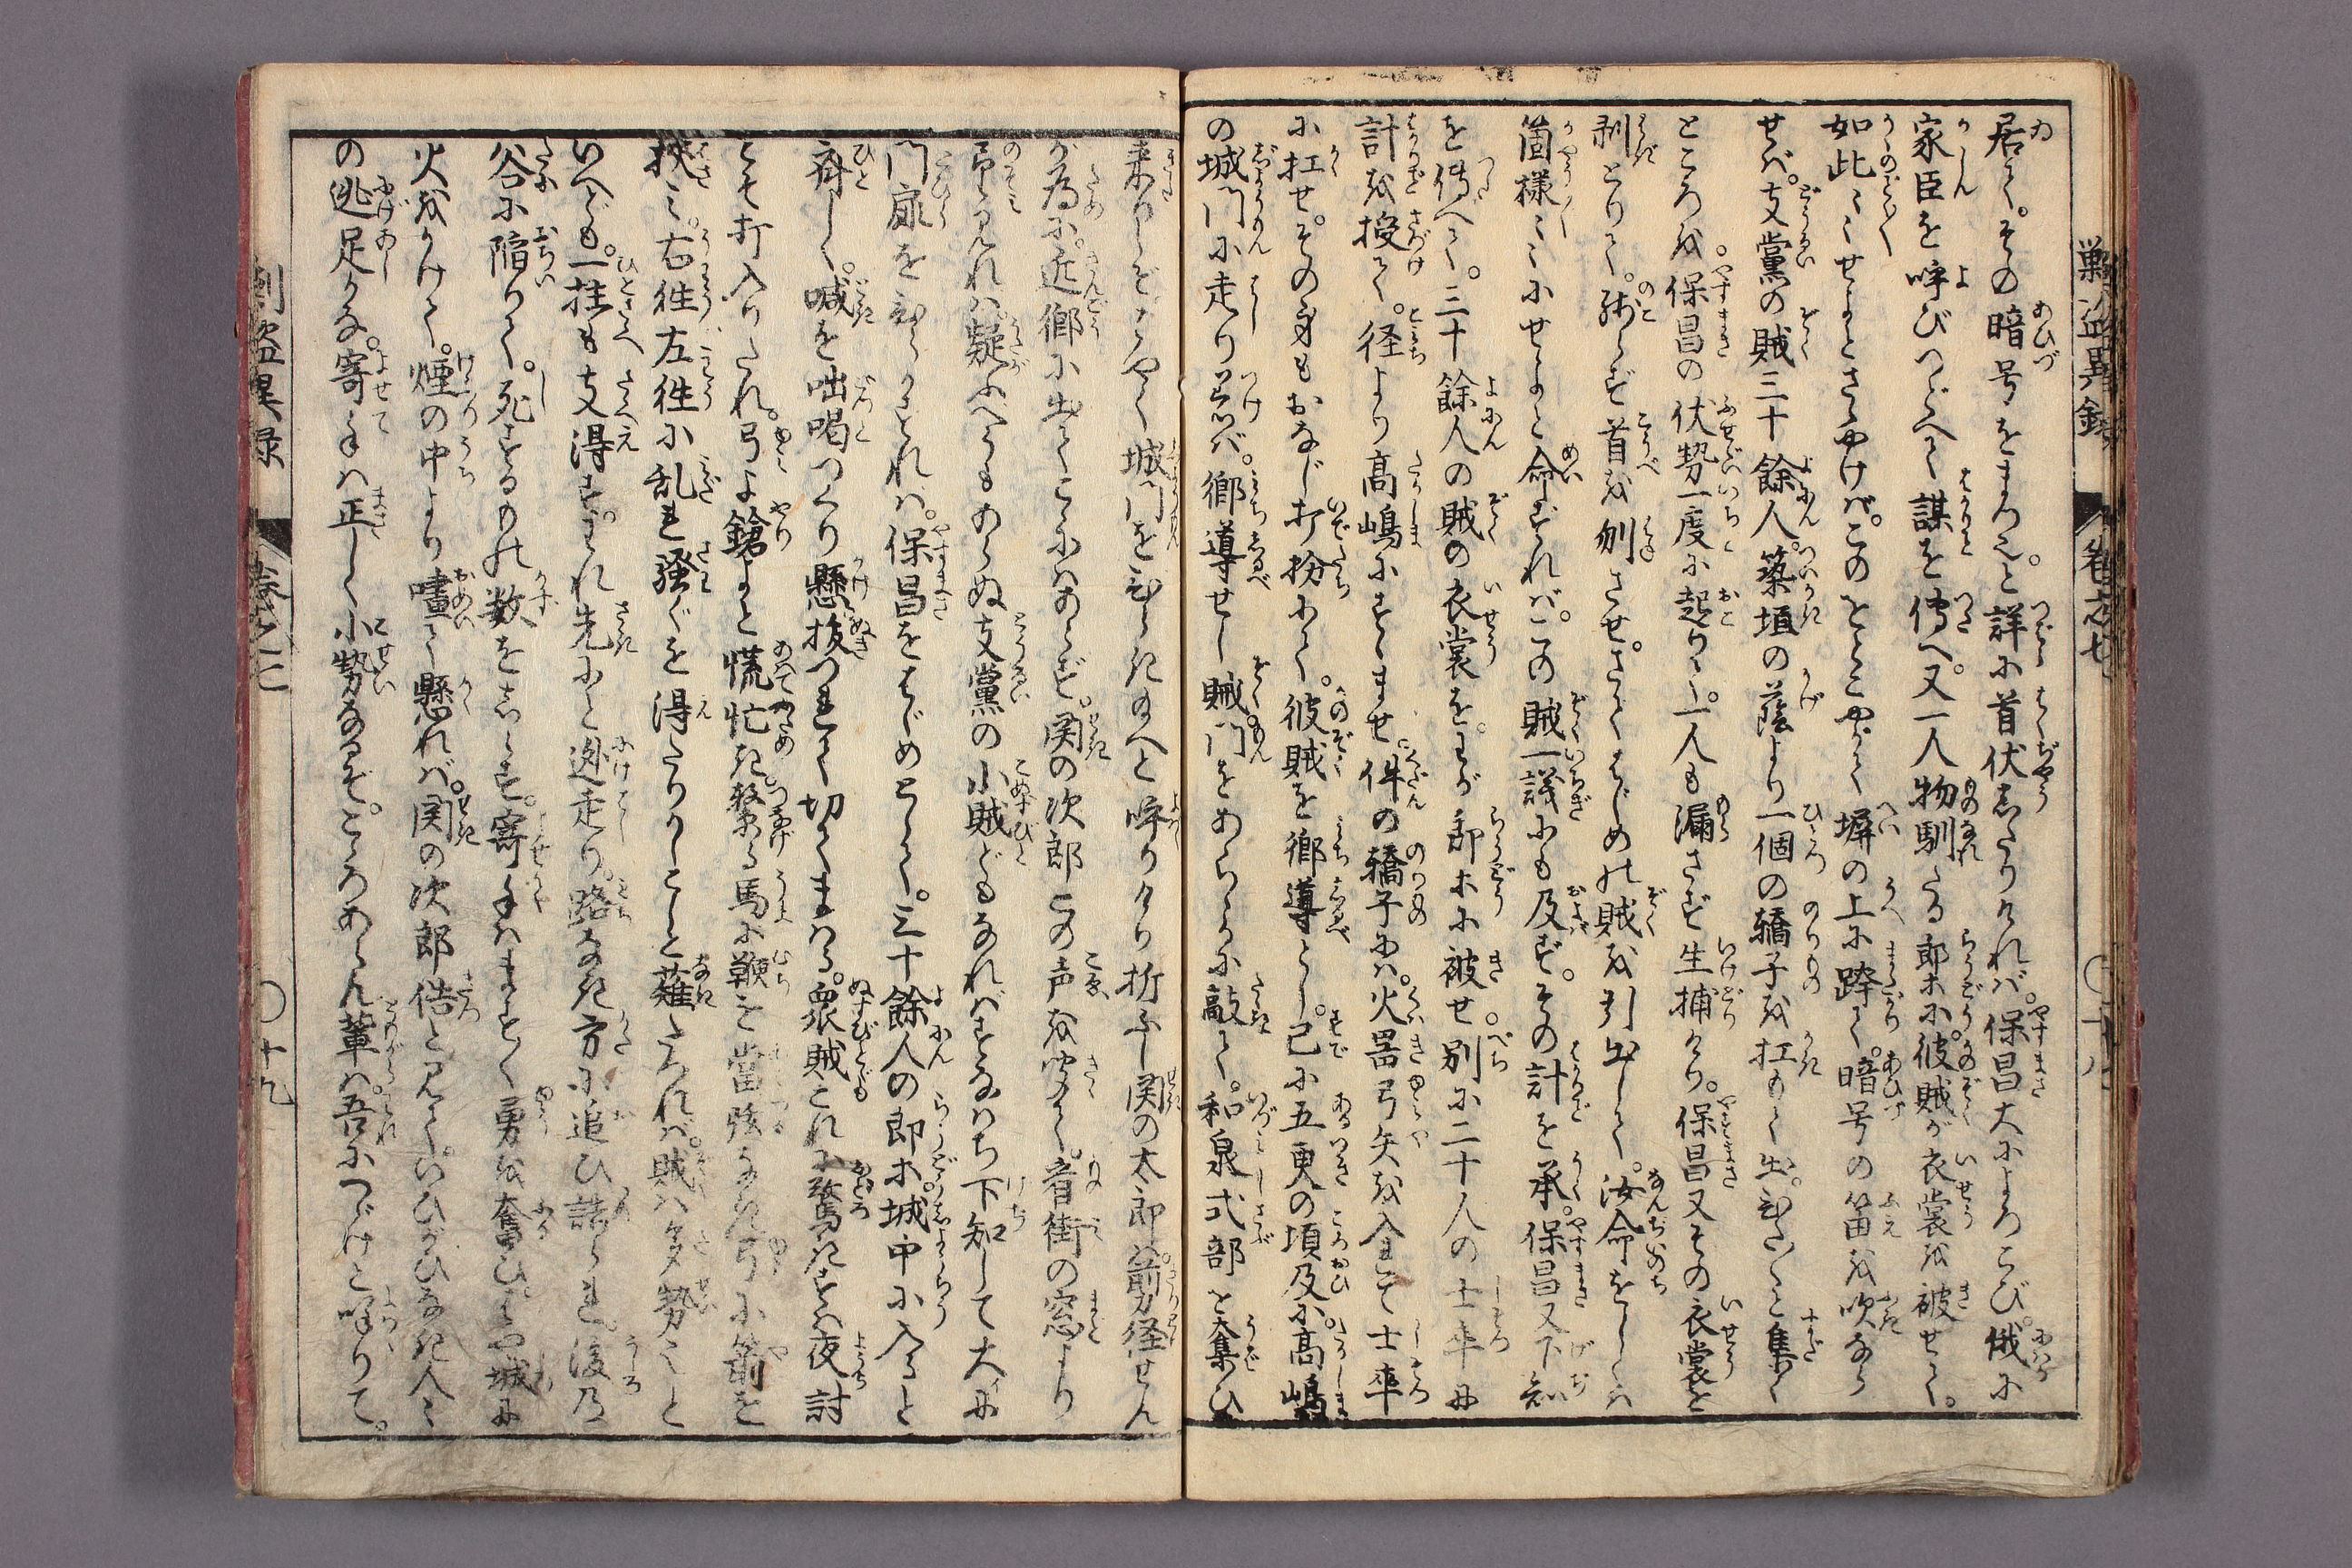 居て。その暗号をまちぬ。と詳に首伏したりければ。保昌大によろこび。俄に
家臣を呼びつどへて謀を傳へ。又一人物馴たる郎等に。彼賊が衣裳を被せて。
如此〻〻せよとさゝやけば。このをとこやがて塀の上に跨て。暗号の笛を吹なら
せば。支黨の賊三十餘人。築垣の蔭より一個の轎子を扛もて出。むら〳〵と集て
ところを。保昌の伏勢一度に起りて。一人も漏さず生捕けり。保昌又その衣裳を
剥とりて。残らず首を刎させ。さてはじめの賊を引出して。汝命をしくは
箇様〻〻にせよと命ずれば。この賊一議にも及ず。その計を承。保昌又下知
を傳へて。三十餘人の賊の衣裳を。わが郎等に被せ。別に二十人の士卒に
計を授て。径より高嶋にすゝませ。件の轎子には。火器弓矢を入まぜて士卒
に扛せ。その身もおなじ打扮にて。彼賊を郷導とし。已に五更の頃及に。高嶋
の城門に走り著ば。郷導せし賊門をあらゝかに敲て。和泉式部を奪ひ
来りしぞとくやく城門をひらき給へと呼りけり折ふし関の太郎は。箭力経せん
が為に。近郷に出てこゝにはあらず。関の次郎この声を聞て。音街の窓より
臨み見れば。疑ふべうもあらぬ支黨の小賊どもなればすなはち下知して大に
門扉をひらかすれは。保昌をはじめとして。三十餘人の郎等城中に入ると
齊しく。喊を咄喝つくり懸抜つれて切てまはる。衆賊これに驚きすは夜討
こそ打入りたれ。弓よ鎗よと慌忙き。繋る馬に鞭を當弦なき弓に箭を
挟み。右往左往に乱れ騒ぐを得たりかしこしと薙たつれば。賊は多勢也と
いへども。一拄も支得ず。われ先にと迯走り。路なき方に追ひ詰られ。後乃
谷に陥りて。死するもの数をしらず。寄手はます〳〵勇を奮ひ。はや城に
火をかけて。煙の中より嚍て懸れば。関の次郎佶と見て。いひがひなき人〻
の逃足かな。寄手は正しく小勢なるぞ。こゝろあらん輩は。吾につゞけと呼りて。
巣盗異録
巻之七
十八
十九